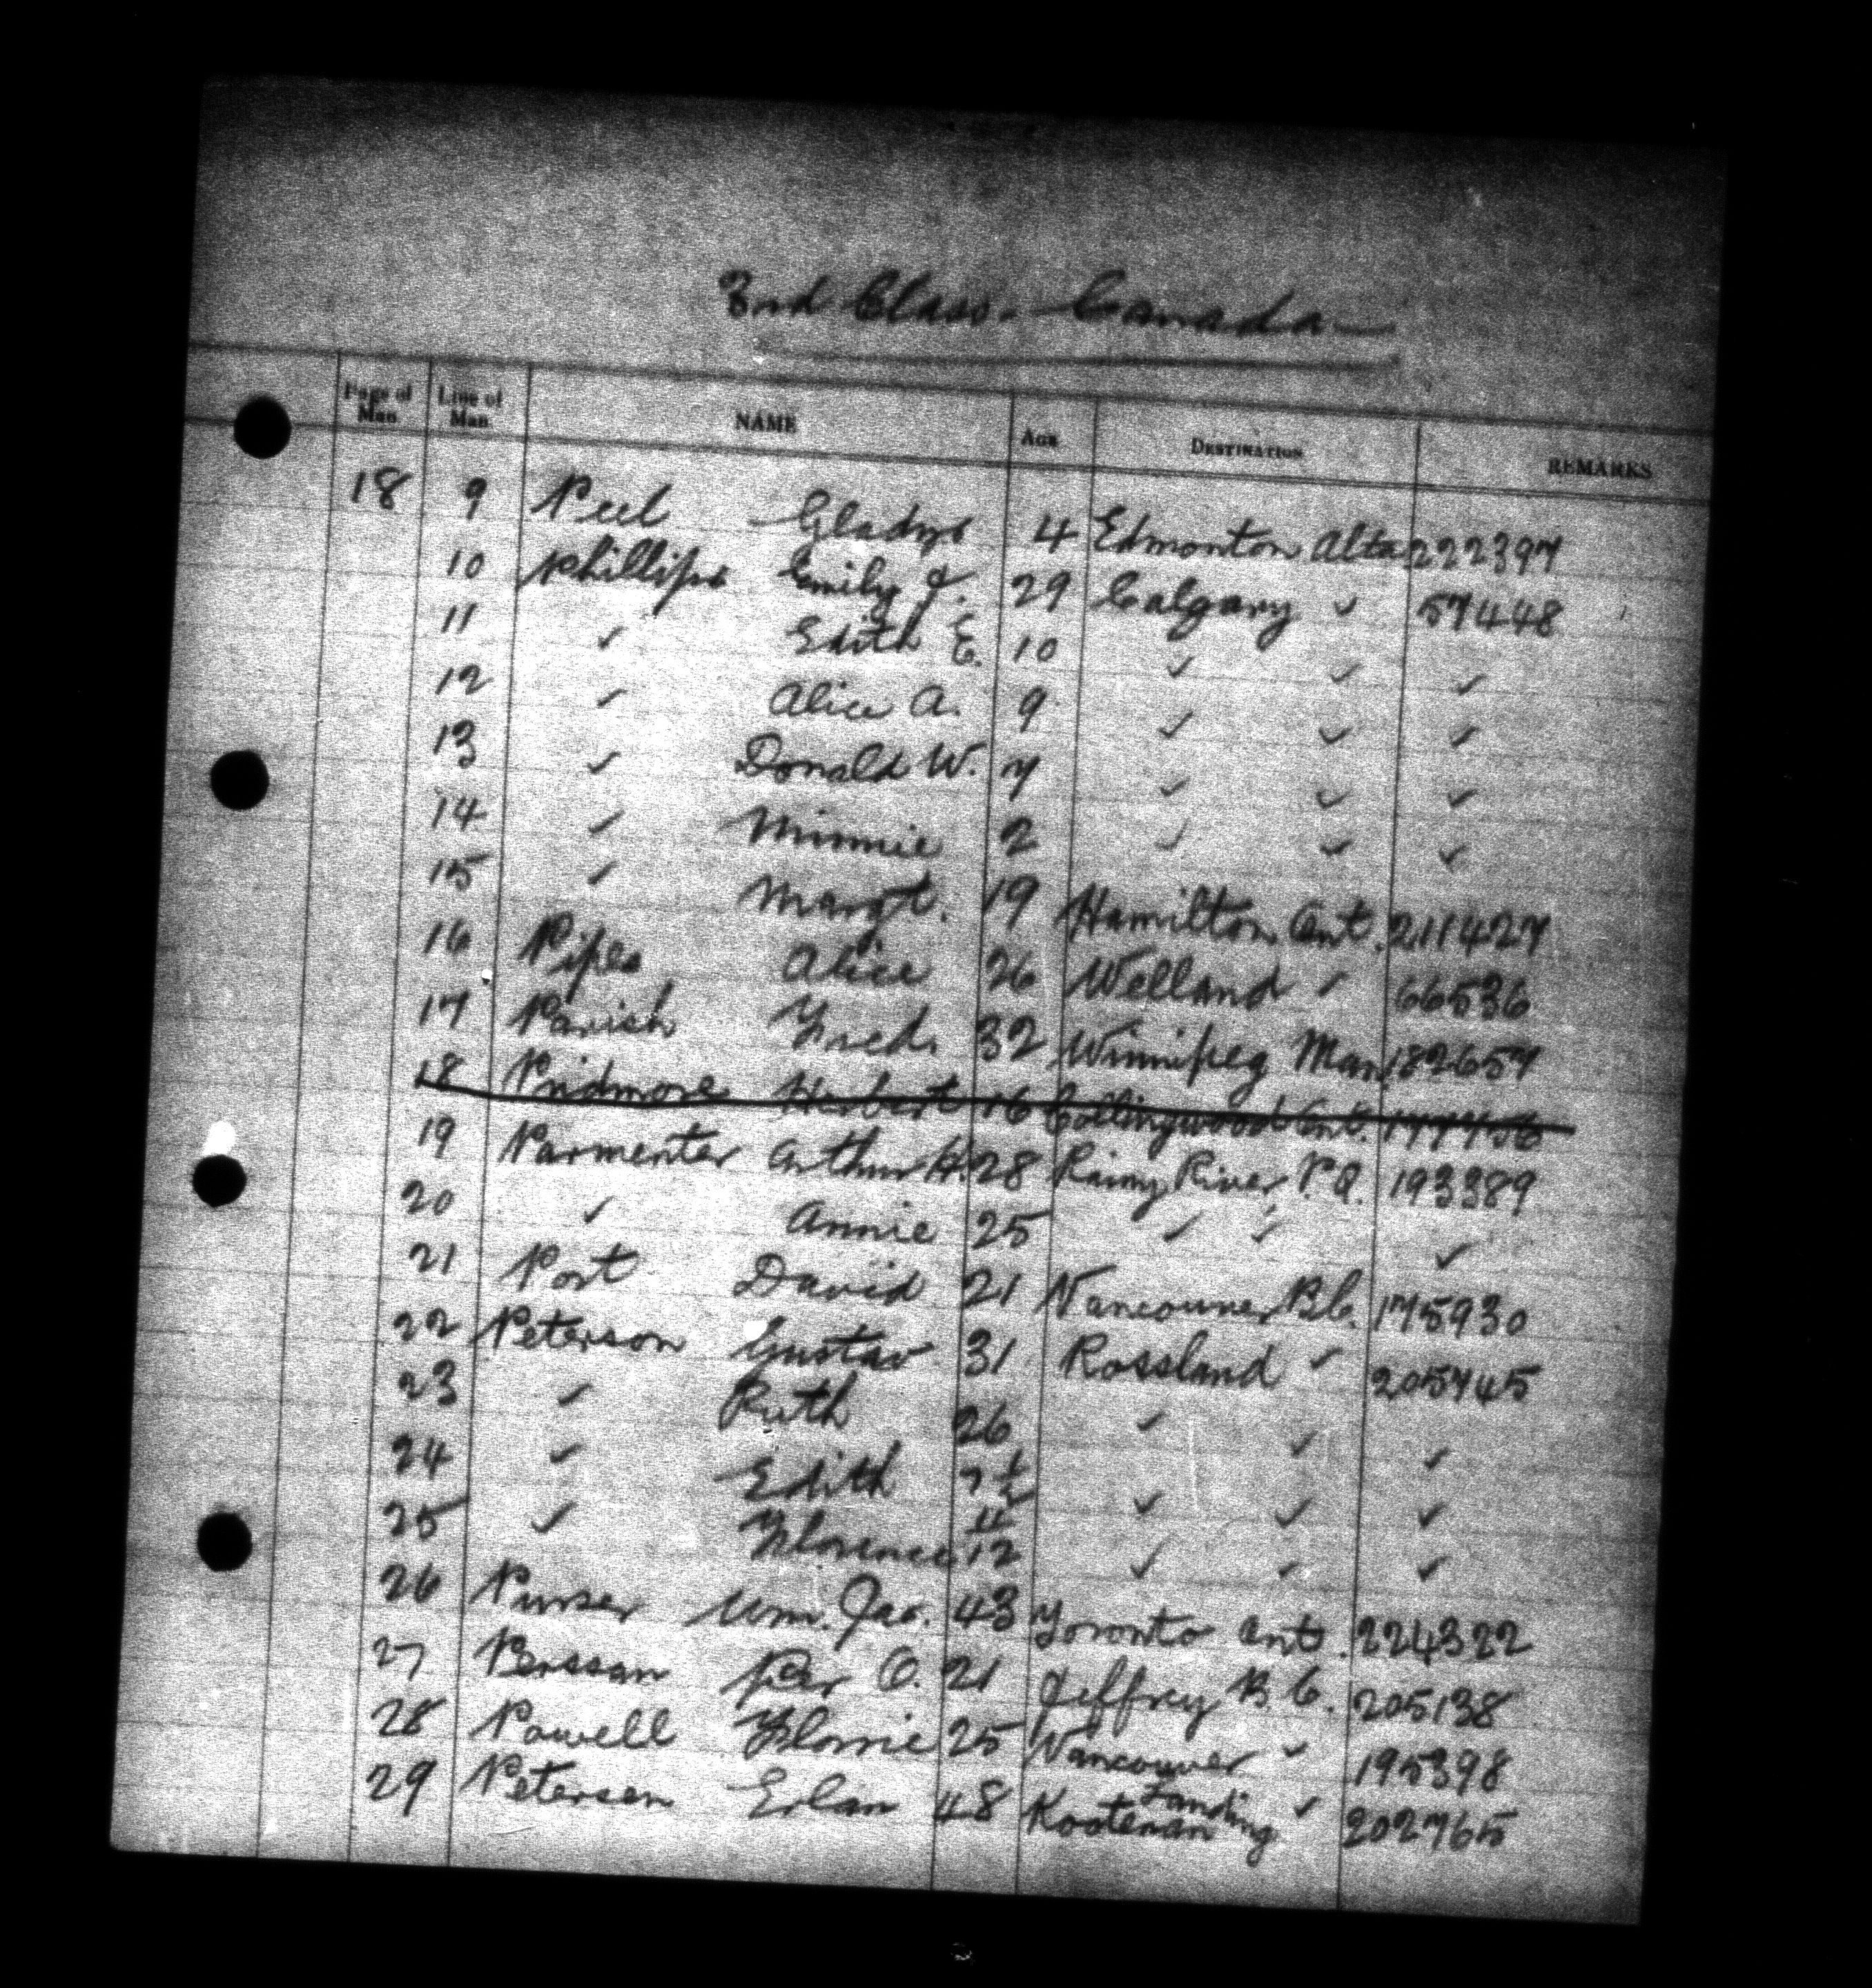 3rd Class. Canada
Page of Man Line of Man NAME AGE DESTINATION REMARKS
18 9 Peel Gladys 4 Edmonton Alta 222397
10 Phillips Emily J. 29 Calgary ✓ 57448
11 ✓ Edith E. 10 ✓ ✓ ✓
12 ✓ Alice A. 9 ✓ ✓ ✓
13 ✓ Donald W. 7 ✓ ✓ ✓
14 ✓ Minnie 2 ✓ ✓ ✓
15 ✓ Margt. 19 Hamilton Ont. 211427
16 Pipes Alice 26 Welland ✓ 66536
17 Parish Fred. 32 Winnipeg Man 182657
18 Pridmore Herbert 16 Collingwood Ont.
19 Parmenter Arthur H. 28 Rainy River P.Q. 193389
20 ✓ Annie 25 ✓ ✓ ✓
21 Port David 21 Vancouver B.C. 175930
22 Peterson Gustav 31 Rossland ✓ 205745
23 ✓ Ruth 26 ✓ ✓ ✓
24 ✓ Edith ✓ ✓ ✓
25 ✓ Florence 11/12 ✓ ✓ ✓
26 Purser Wm. Jas. 43 Toronto Ont. 224322
27 Perssan Per O. 21 Jeffrey B.C. 205138
28 Powell Florrie 25 Vancouver ✓ 195398
29 Petersen Erlan 48 Kootenan Landing ✓ 202765